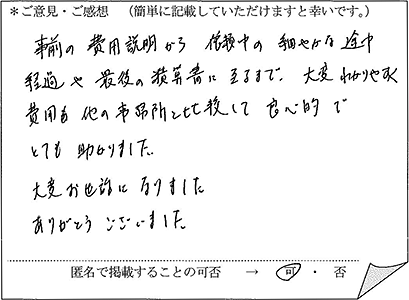 ＊ご意見・ご感想　（簡単に記載していただけますと幸いです。）
事前の費用説明から依頼中の細やかな途中
経過や最後の積算書に至るまで、大変わかりやすく
費用も他の事務所と比較して良心的で
とても助かりました。
大変お世話になりました
ありがとうございました
匿名で掲載することの可否　→　可　・　否